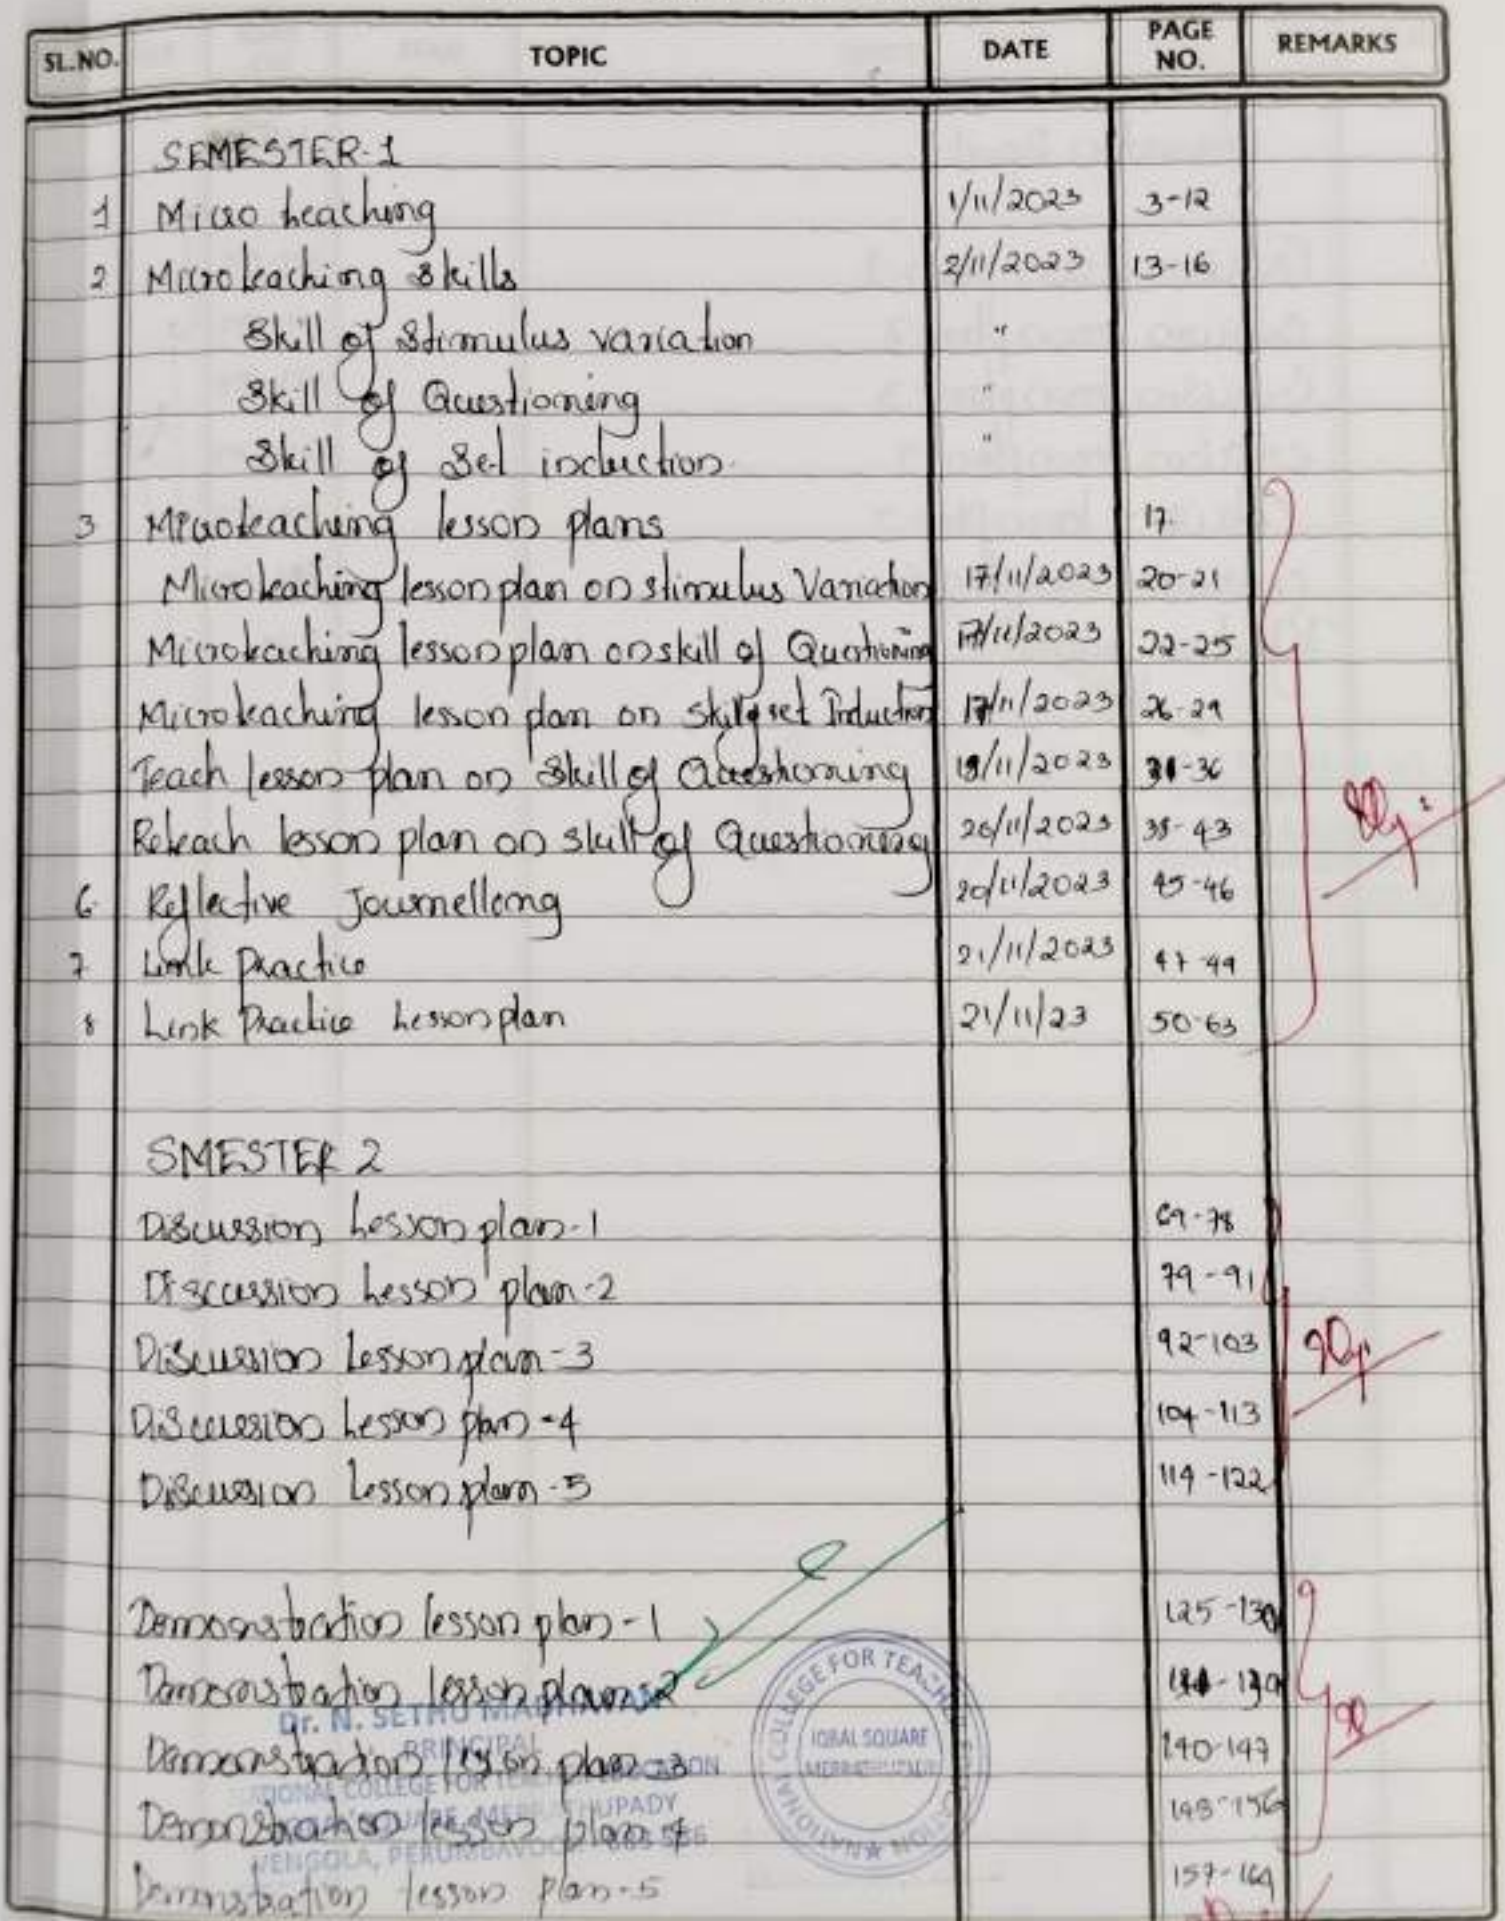 SL.NO. TOPIC DATE PAGE NO. REMARKS
SEMESTER-1
1 Micro teaching 1/11/2023 3-12
2 Microteaching Skills 2/11/2023 13-16
Skill of Stimulus variation "
Skill of Questioning "
Skill of Set induction. "
3 Microteaching lesson plans 17.
Microteaching lesson plan on stimulus Variation 17/11/2023 20-21
Microteaching lesson plan on skill of Questioning 17/11/2023 22-25
Microteaching lesson plan on skill of set Induction 17/11/2023 26-29
Teach lesson plan on Skill of Questioning 18/11/2023 31-36
Reteach lesson plan on skill of Questioning 20/11/2023 38-43
6 Reflective Journelleng 20/11/2023 45-46
7 Link Practice 21/11/2023 47-49
8 Link Practice Lesson plan 21/11/23 50-63
SMESTER 2
Discussion Lesson plan-1 69-78
Discussion Lesson plan-2 79-91
Discussion Lesson plan-3 92-103
Discussion Lesson plan-4 104-113
Discussion Lesson plan-5 114-122
Demonstration lesson plan-1 125-130
Demonstration lesson plan-2
Dr. N. SETHU MADHAVAN
PRINCIPAL
Demonstration lesson plan-3 140-147
NATIONAL COLLEGE FOR TEACHER EDUCATION
IQBAL SQUARE, MEPRATHUPADY
Demonstration lesson plan-4 148-156
VENGOLA, PERUMBAVOOR
Demonstration lesson plan-5 157-164
NATIONAL COLLEGE FOR TEACHER EDUCATION
IQBAL SQUARE